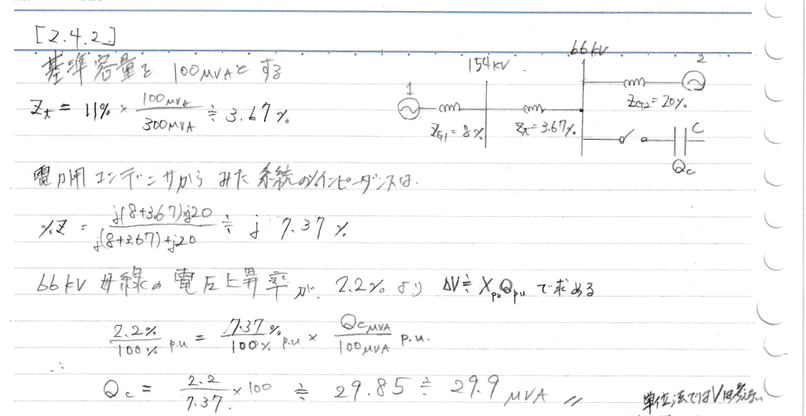 [2.4.2]
基準容量を 100MVAとする
Zt = 11% × 100MVA / 300MVA ≒ 3.67%
154kV
66kV
1
2
ZG1=8%
Zt=3.67%
ZG2=20%
C
Qc
電力用コンデンサからみた系統の%インピーダンスは、
%Z = j(8+3.67)·j20 / j(8+3.67)+j20 ≒ j 7.37 %
66kV 母線の電圧上昇率が、2.2%より ΔV≒Xp.uQp.u で求める
2.2% / 100% p.u = 7.37% / 100% p.u × QcMVA / 100MVA p.u.
∴ Qc = 2.2 / 7.37. × 100 ≒ 29.85 ≒ 29.9 MVA 〃
単位法ではVは